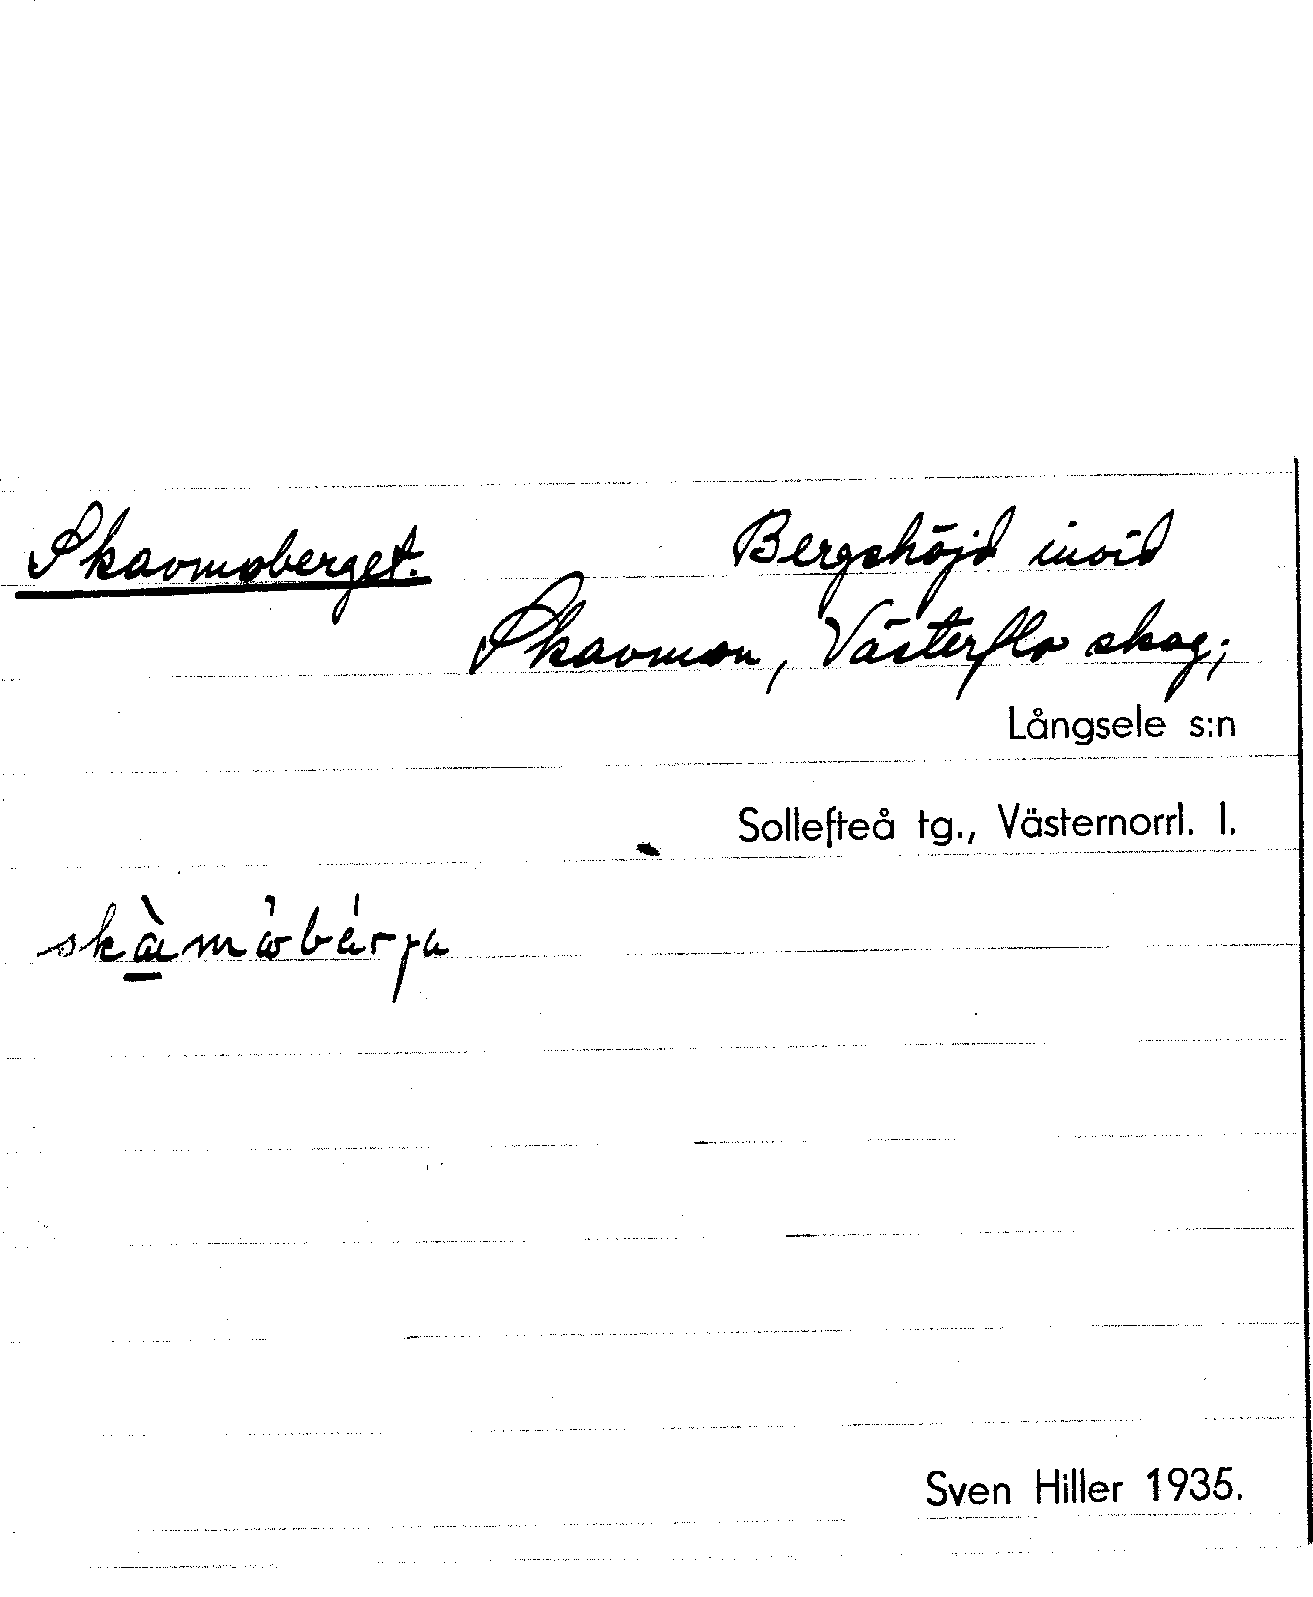 Skavmoberget.
Bergshöjd invid
Skavmon, Västerflo skog;
Långsele s:n
Sollefteå tg., Västernorrl. l.
Sven Hiller 1935.